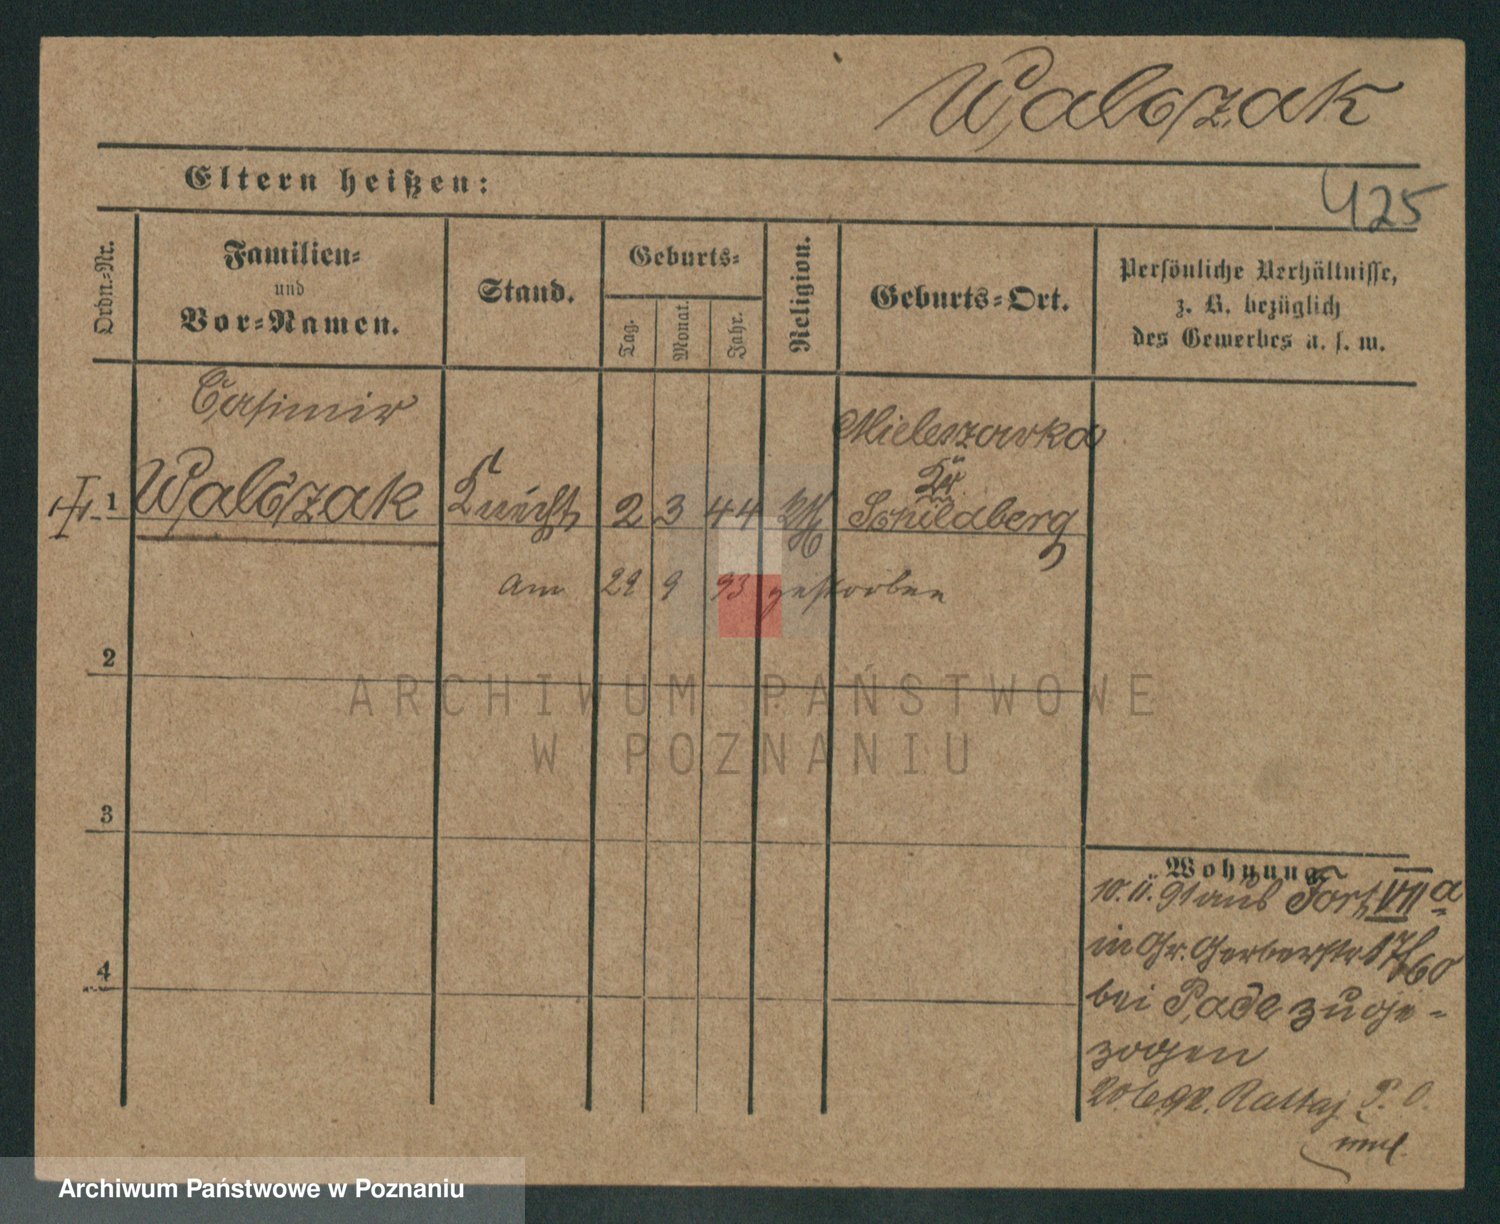 Walczak
Eltern heißen:
425
Ordn.-Nr.
Familien-
und
Vor-Namen.
Stand.
Geburts-
Tag.
Monat.
Jahr.
Religion.
Geburts-Ort.
Persönliche Verhältnisse,
z. B. bezüglich
des Gewerbes u. s. w.
Casimir
Mieleszowka
Kr
1 Walczak Knecht 2 3 44 Schildberg
am 29 9 93 gestorben
2
3
4
Wohnung
10. 11. 91 aus Fort VIII a
in Gr. Gerberstr
bei Pade zuge-
zogen
Rattaj P. O.
ARCHIWUM PAŃSTWOWE
W POZNANIU
Archiwum Państwowe w Poznaniu